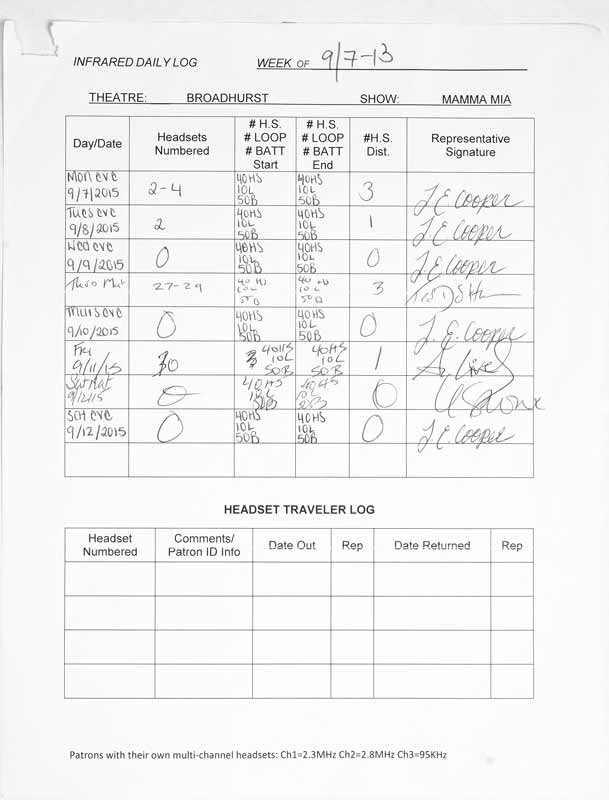 INFRARED DAILY LOG WEEK OF 9/7-13
THEATRE: BROADHURST SHOW: MAMMA MIA
Day/Date Headsets Numbered # H.S. # LOOP # BATT Start # H.S. # LOOP # BATT End #H.S. Dist. Representative Signature
Mon eve 9/7/2015 2-4 40HS 10L 50B 40HS 10L 50B 3 J. E. Cooper
Tues eve 9/8/2015 2 40HS 10L 50B 40HS 10L 50B 1 J. E. Cooper
Wed eve 9/9/2015 0 40HS 10L 50B 40HS 10L 50B 0 J. E. Cooper
Thro Mat 27-29 40 HS 10 L 50 B 40 HS 10 L 50 B 3
Thurs eve 9/10/2015 0 40HS 10L 50B 40HS 10L 50B 0 J. E. Cooper
Fri 9/11/15 30 40HS 10L 50B 40HS 10L 50B 1
Sat Mat 9/12/15 0 40HS 10L 50B 40HS 10L 50B 0
Sat eve 9/12/2015 0 40HS 10L 50B 40HS 10L 50B 0 J. E. Cooper
HEADSET TRAVELER LOG
Headset Numbered Comments/ Patron ID Info Date Out Rep Date Returned Rep
Patrons with their own multi-channel headsets: Ch1=2.3MHz Ch2=2.8MHz Ch3=95KHz